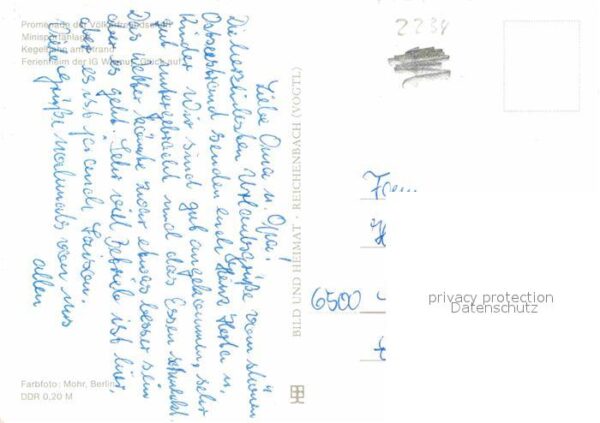 Promenade der Völkerfreundschaft
Minisportanlage
Kegelbahn am Strand
Ferienheim der IG Wismut "Glück auf"
Liebe Oma u. Opa!
Die herzlichsten Urlaubsgrüße vom schönen
Ostseestrand senden euch Heinz Herta u.
Kinder. Wir sind gut angekommen, sehr
gut untergebracht und das Essen schmeckt.
Das Wetter könnte zwar etwas besser sein
aber es geht. Sehr viel Betrieb ist hier,
aber es ist ja auch Saison.
Viele Grüße nochmals von uns
allen
BILD UND HEIMAT · REICHENBACH (VOGTL)
2238
6500
privacy protection
Datenschutz
Farbfoto: Mohr, Berlin
DDR 0,20 M